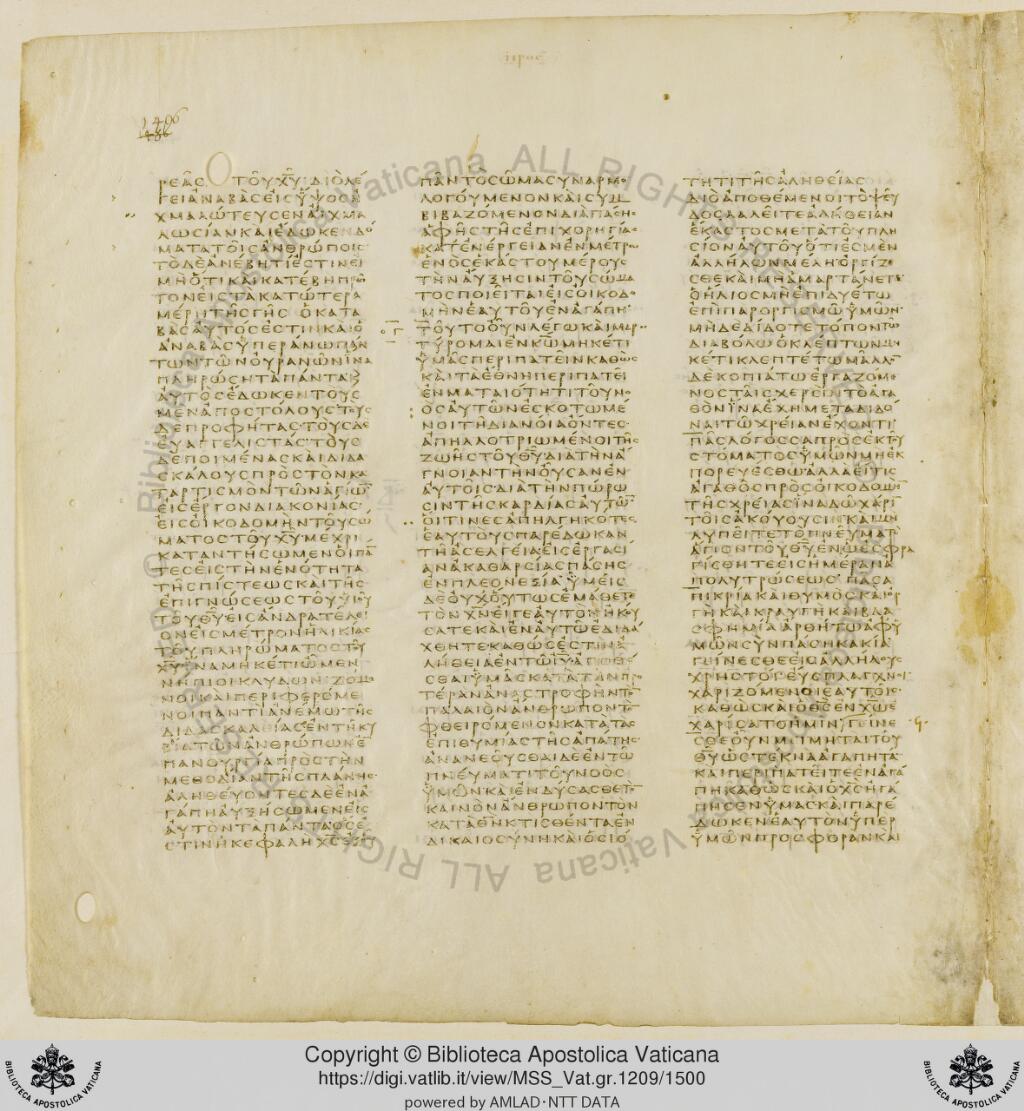 προς
1496
ΡΕΑΣ ΤΟΥ ΧΥ ΔΙΟ ΛΕ
ΓΕΙ ΑΝΑΒΑΣ ΕΙΣ ΥΨΟΣ Η
ΧΜΑΛΩΤΕΥΣΕΝ ΑΙΧΜΑ
ΛΩΣΙΑΝ ΚΑΙ ΕΔΩΚΕΝ ΔΟ
ΜΑΤΑ ΤΟΙΣ ΑΝΘΡΩΠΟΙΣ
ΤΟ ΔΕ ΑΝΕΒΗ ΤΙ ΕΣΤΙΝ ΕΙ
ΜΗ ΟΤΙ ΚΑΙ ΚΑΤΕΒΗ ΠΡΩ
ΤΟΝ ΕΙΣ ΤΑ ΚΑΤΩΤΕΡΑ
ΜΕΡΗ ΤΗΣ ΓΗΣ Ο ΚΑΤΑ
ΒΑΣ ΑΥΤΟΣ ΕΣΤΙΝ ΚΑΙ Ο
ΑΝΑΒΑΣ ΥΠΕΡΑΝΩ ΠΑΝ
ΤΩΝ ΤΩΝ ΟΥΡΑΝΩΝ ΙΝΑ
ΠΛΗΡΩΣΗ ΤΑ ΠΑΝΤΑ ΚΑΙ
ΑΥΤΟΣ ΕΔΩΚΕΝ ΤΟΥΣ
ΜΕΝ ΑΠΟΣΤΟΛΟΥΣ ΤΟΥΣ
ΔΕ ΠΡΟΦΗΤΑΣ ΤΟΥΣ ΔΕ
ΕΥΑΓΓΕΛΙΣΤΑΣ ΤΟΥΣ
ΔΕ ΠΟΙΜΕΝΑΣ ΚΑΙ ΔΙΔΑ
ΣΚΑΛΟΥΣ ΠΡΟΣ ΤΟΝ ΚΑ
ΤΑΡΤΙΣΜΟΝ ΤΩΝ ΑΓΙΩ̅
ΕΙΣ ΕΡΓΟΝ ΔΙΑΚΟΝΙΑΣ
ΕΙΣ ΟΙΚΟΔΟΜΗΝ ΤΟΥ ΣΩ
ΜΑΤΟΣ ΤΟΥ ΧΥ ΜΕΧΡΙ
ΚΑΤΑΝΤΗΣΩΜΕΝ ΟΙ ΠΑ̅
ΤΕΣ ΕΙΣ ΤΗΝ ΕΝΟΤΗΤΑ
ΤΗΣ ΠΙΣΤΕΩΣ ΚΑΙ ΤΗΣ
ΕΠΙΓΝΩΣΕΩΣ ΤΟΥ ΥΙΟΥ
ΤΟΥ ΘΥ ΕΙΣ ΑΝΔΡΑ ΤΕΛΕΙ
ΟΝ ΕΙΣ ΜΕΤΡΟΝ ΗΛΙΚΙΑΣ
ΤΟΥ ΠΛΗΡΩΜΑΤΟΣ ΤΟΥ
ΧΥ ΙΝΑ ΜΗΚΕΤΙ ΩΜΕΝ
ΝΗΠΙΟΙ ΚΛΥΔΩΝΙΖΟΜΕ
ΝΟΙ ΚΑΙ ΠΕΡΙΦΕΡΟΜΕ
ΝΟΙ ΠΑΝΤΙ ΑΝΕΜΩ ΤΗΣ
ΔΙΔΑΣΚΑΛΙΑΣ ΕΝ ΤΗ ΚΥ
ΒΙΑ ΤΩΝ ΑΝΘΡΩΠΩΝ ΕΝ
ΠΑΝΟΥΡΓΙΑ ΠΡΟΣ ΤΗΝ
ΜΕΘΟΔΙΑΝ ΤΗΣ ΠΛΑΝΗΣ
ΑΛΗΘΕΥΟΝΤΕΣ ΔΕ ΕΝ Α
ΓΑΠΗ ΑΥΞΗΣΩΜΕΝ ΕΙΣ
ΑΥΤΟΝ ΤΑ ΠΑΝΤΑ ΟΣ Ε
ΣΤΙΝ Η ΚΕΦΑΛΗ ΧΣ ΕΞ ΟΥ
ΠΑΝ ΤΟ ΣΩΜΑ ΣΥΝΑΡΜΟ
ΛΟΓΟΥΜΕΝΟΝ ΚΑΙ ΣΥΜ
ΒΙΒΑΖΟΜΕΝΟΝ ΔΙΑ ΠΑΣΗΣ
ΑΦΗΣ ΤΗΣ ΕΠΙΧΟΡΗΓΙΑΣ
ΚΑΤ ΕΝΕΡΓΕΙΑΝ ΕΝ ΜΕΤΡΩ
ΕΝΟΣ ΕΚΑΣΤΟΥ ΜΕΡΟΥΣ
ΤΗΝ ΑΥΞΗΣΙΝ ΤΟΥ ΣΩΜΑ
ΤΟΣ ΠΟΙΕΙΤΑΙ ΕΙΣ ΟΙΚΟΔΟ
ΜΗΝ ΕΑΥΤΟΥ ΕΝ ΑΓΑΠΗ
ΤΟΥΤΟ ΟΥΝ ΛΕΓΩ ΚΑΙ ΜΑΡ
ΤΥΡΟΜΑΙ ΕΝ ΚΩ ΜΗΚΕΤΙ
ΥΜΑΣ ΠΕΡΙΠΑΤΕΙΝ ΚΑΘΩΣ
ΚΑΙ ΤΑ ΕΘΝΗ ΠΕΡΙΠΑΤΕΙ
ΕΝ ΜΑΤΑΙΟΤΗΤΙ ΤΟΥ ΝΟ
ΟΣ ΑΥΤΩΝ ΕΣΚΟΤΩΜΕ
ΝΟΙ ΤΗ ΔΙΑΝΟΙΑ ΟΝΤΕΣ
ΑΠΗΛΛΟΤΡΙΩΜΕΝΟΙ ΤΗΣ
ΖΩΗΣ ΤΟΥ ΘΥ ΔΙΑ ΤΗΝ Α
ΓΝΟΙΑΝ ΤΗΝ ΟΥΣΑΝ ΕΝ
ΑΥΤΟΙΣ ΔΙΑ ΤΗΝ ΠΩΡΩ
ΣΙΝ ΤΗΣ ΚΑΡΔΙΑΣ ΑΥΤΩ̅
ΟΙΤΙΝΕΣ ΑΠΗΛΓΗΚΟΤΕΣ
ΕΑΥΤΟΥΣ ΠΑΡΕΔΩΚΑΝ
ΤΗ ΑΣΕΛΓΕΙΑ ΕΙΣ ΕΡΓΑΣΙ
ΑΝ ΑΚΑΘΑΡΣΙΑΣ ΠΑΣΗΣ
ΕΝ ΠΛΕΟΝΕΞΙΑ ΥΜΕΙΣ
ΔΕ ΟΥΧ ΟΥΤΩΣ ΕΜΑΘΕΤΕ
ΤΟΝ ΧΝ ΕΙ ΓΕ ΑΥΤΟΝ ΗΚΟΥ
ΣΑΤΕ ΚΑΙ ΕΝ ΑΥΤΩ ΕΔΙΔΑ
ΧΘΗΤΕ ΚΑΘΩΣ ΕΣΤΙΝ Α
ΛΗΘΕΙΑ ΕΝ ΤΩ ΙΥ ΑΠΟΘΕ
ΣΘΑΙ ΥΜΑΣ ΚΑΤΑ ΤΗΝ ΠΡΟ
ΤΕΡΑΝ ΑΝΑΣΤΡΟΦΗΝ ΤΟΝ
ΠΑΛΑΙΟΝ ΑΝΘΡΩΠΟΝ ΤΟΝ
ΦΘΕΙΡΟΜΕΝΟΝ ΚΑΤΑ ΤΑΣ
ΕΠΙΘΥΜΙΑΣ ΤΗΣ ΑΠΑΤΗΣ
ΑΝΑΝΕΟΥΣΘΑΙ ΔΕ ΕΝ ΤΩ
ΠΝΕΥΜΑΤΙ ΤΟΥ ΝΟΟΣ
ΥΜΩΝ ΚΑΙ ΕΝΔΥΣΑΣΘΕ ΤΟΝ
ΚΑΙΝΟΝ ΑΝΘΡΩΠΟΝ ΤΟΝ
ΚΑΤΑ ΘΝ ΚΤΙΣΘΕΝΤΑ ΕΝ
ΔΙΚΑΙΟΣΥΝΗ ΚΑΙ ΟΣΙΟ
ΤΗΤΙ ΤΗΣ ΑΛΗΘΕΙΑΣ
ΔΙΟ ΑΠΟΘΕΜΕΝΟΙ ΤΟ ΨΕΥ
ΔΟΣ ΛΑΛΕΙΤΕ ΑΛΗΘΕΙΑΝ
ΕΚΑΣΤΟΣ ΜΕΤΑ ΤΟΥ ΠΛΗ
ΣΙΟΝ ΑΥΤΟΥ ΟΤΙ ΕΣΜΕΝ
ΑΛΛΗΛΩΝ ΜΕΛΗ ΟΡΓΙΖΕ
ΣΘΕ ΚΑΙ ΜΗ ΑΜΑΡΤΑΝΕΤΕ
Ο ΗΛΙΟΣ ΜΗ ΕΠΙΔΥΕΤΩ
ΕΠΙ ΠΑΡΟΡΓΙΣΜΩ ΥΜΩΝ
ΜΗΔΕ ΔΙΔΟΤΕ ΤΟΠΟΝ ΤΩ
ΔΙΑΒΟΛΩ Ο ΚΛΕΠΤΩΝ ΜΗ
ΚΕΤΙ ΚΛΕΠΤΕΤΩ ΜΑΛΛΟΝ
ΔΕ ΚΟΠΙΑΤΩ ΕΡΓΑΖΟΜΕ
ΝΟΣ ΤΑΙΣ ΧΕΡΣΙΝ ΤΟ ΑΓΑ
ΘΟΝ ΙΝΑ ΕΧΗ ΜΕΤΑΔΙΔΟ
ΝΑΙ ΤΩ ΧΡΕΙΑΝ ΕΧΟΝΤΙ
ΠΑΣ ΛΟΓΟΣ ΣΑΠΡΟΣ ΕΚ ΤΟΥ
ΣΤΟΜΑΤΟΣ ΥΜΩΝ ΜΗ ΕΚ
ΠΟΡΕΥΕΣΘΩ ΑΛΛΑ ΕΙ ΤΙΣ
ΑΓΑΘΟΣ ΠΡΟΣ ΟΙΚΟΔΟΜΗΝ
ΤΗΣ ΧΡΕΙΑΣ ΙΝΑ ΔΩ ΧΑΡΙΝ
ΤΟΙΣ ΑΚΟΥΟΥΣΙΝ ΚΑΙ ΜΗ
ΛΥΠΕΙΤΕ ΤΟ ΠΝΕΥΜΑ ΤΟ
ΑΓΙΟΝ ΤΟΥ ΘΥ ΕΝ Ω ΕΣΦΡΑ
ΓΙΣΘΗΤΕ ΕΙΣ ΗΜΕΡΑΝ Α
ΠΟΛΥΤΡΩΣΕΩΣ ΠΑΣΑ
ΠΙΚΡΙΑ ΚΑΙ ΘΥΜΟΣ ΚΑΙ ΟΡ
ΓΗ ΚΑΙ ΚΡΑΥΓΗ ΚΑΙ ΒΛΑ
ΣΦΗΜΙΑ ΑΡΘΗΤΩ ΑΦ Υ
ΜΩΝ ΣΥΝ ΠΑΣΗ ΚΑΚΙΑ
ΓΕΙΝΕΣΘΕ ΕΙΣ ΑΛΛΗΛΟΥΣ
ΧΡΗΣΤΟΙ ΕΥΣΠΛΑΓΧΝΟΙ
ΧΑΡΙΖΟΜΕΝΟΙ ΕΑΥΤΟΙΣ
ΚΑΘΩΣ ΚΑΙ Ο ΘΣ ΕΝ ΧΩ Ε
ΧΑΡΙΣΑΤΟ ΗΜΙΝ ΓΕΙΝΕ
ΣΘΕ ΟΥΝ ΜΙΜΗΤΑΙ ΤΟΥ
ΘΥ ΩΣ ΤΕΚΝΑ ΑΓΑΠΗΤΑ
ΚΑΙ ΠΕΡΙΠΑΤΕΙΤΕ ΕΝ ΑΓΑ
ΠΗ ΚΑΘΩΣ ΚΑΙ Ο ΧΣ ΗΓΑ
ΠΗΣΕΝ ΥΜΑΣ ΚΑΙ ΠΑΡΕ
ΔΩΚΕΝ ΕΑΥΤΟΝ ΥΠΕΡ
ΥΜΩΝ ΠΡΟΣΦΟΡΑΝ ΚΑΙ
Copyright © Biblioteca Apostolica Vaticana
https://digi.vatlib.it/view/MSS_Vat.gr.1209/1500
powered by AMLAD·NTT DATA